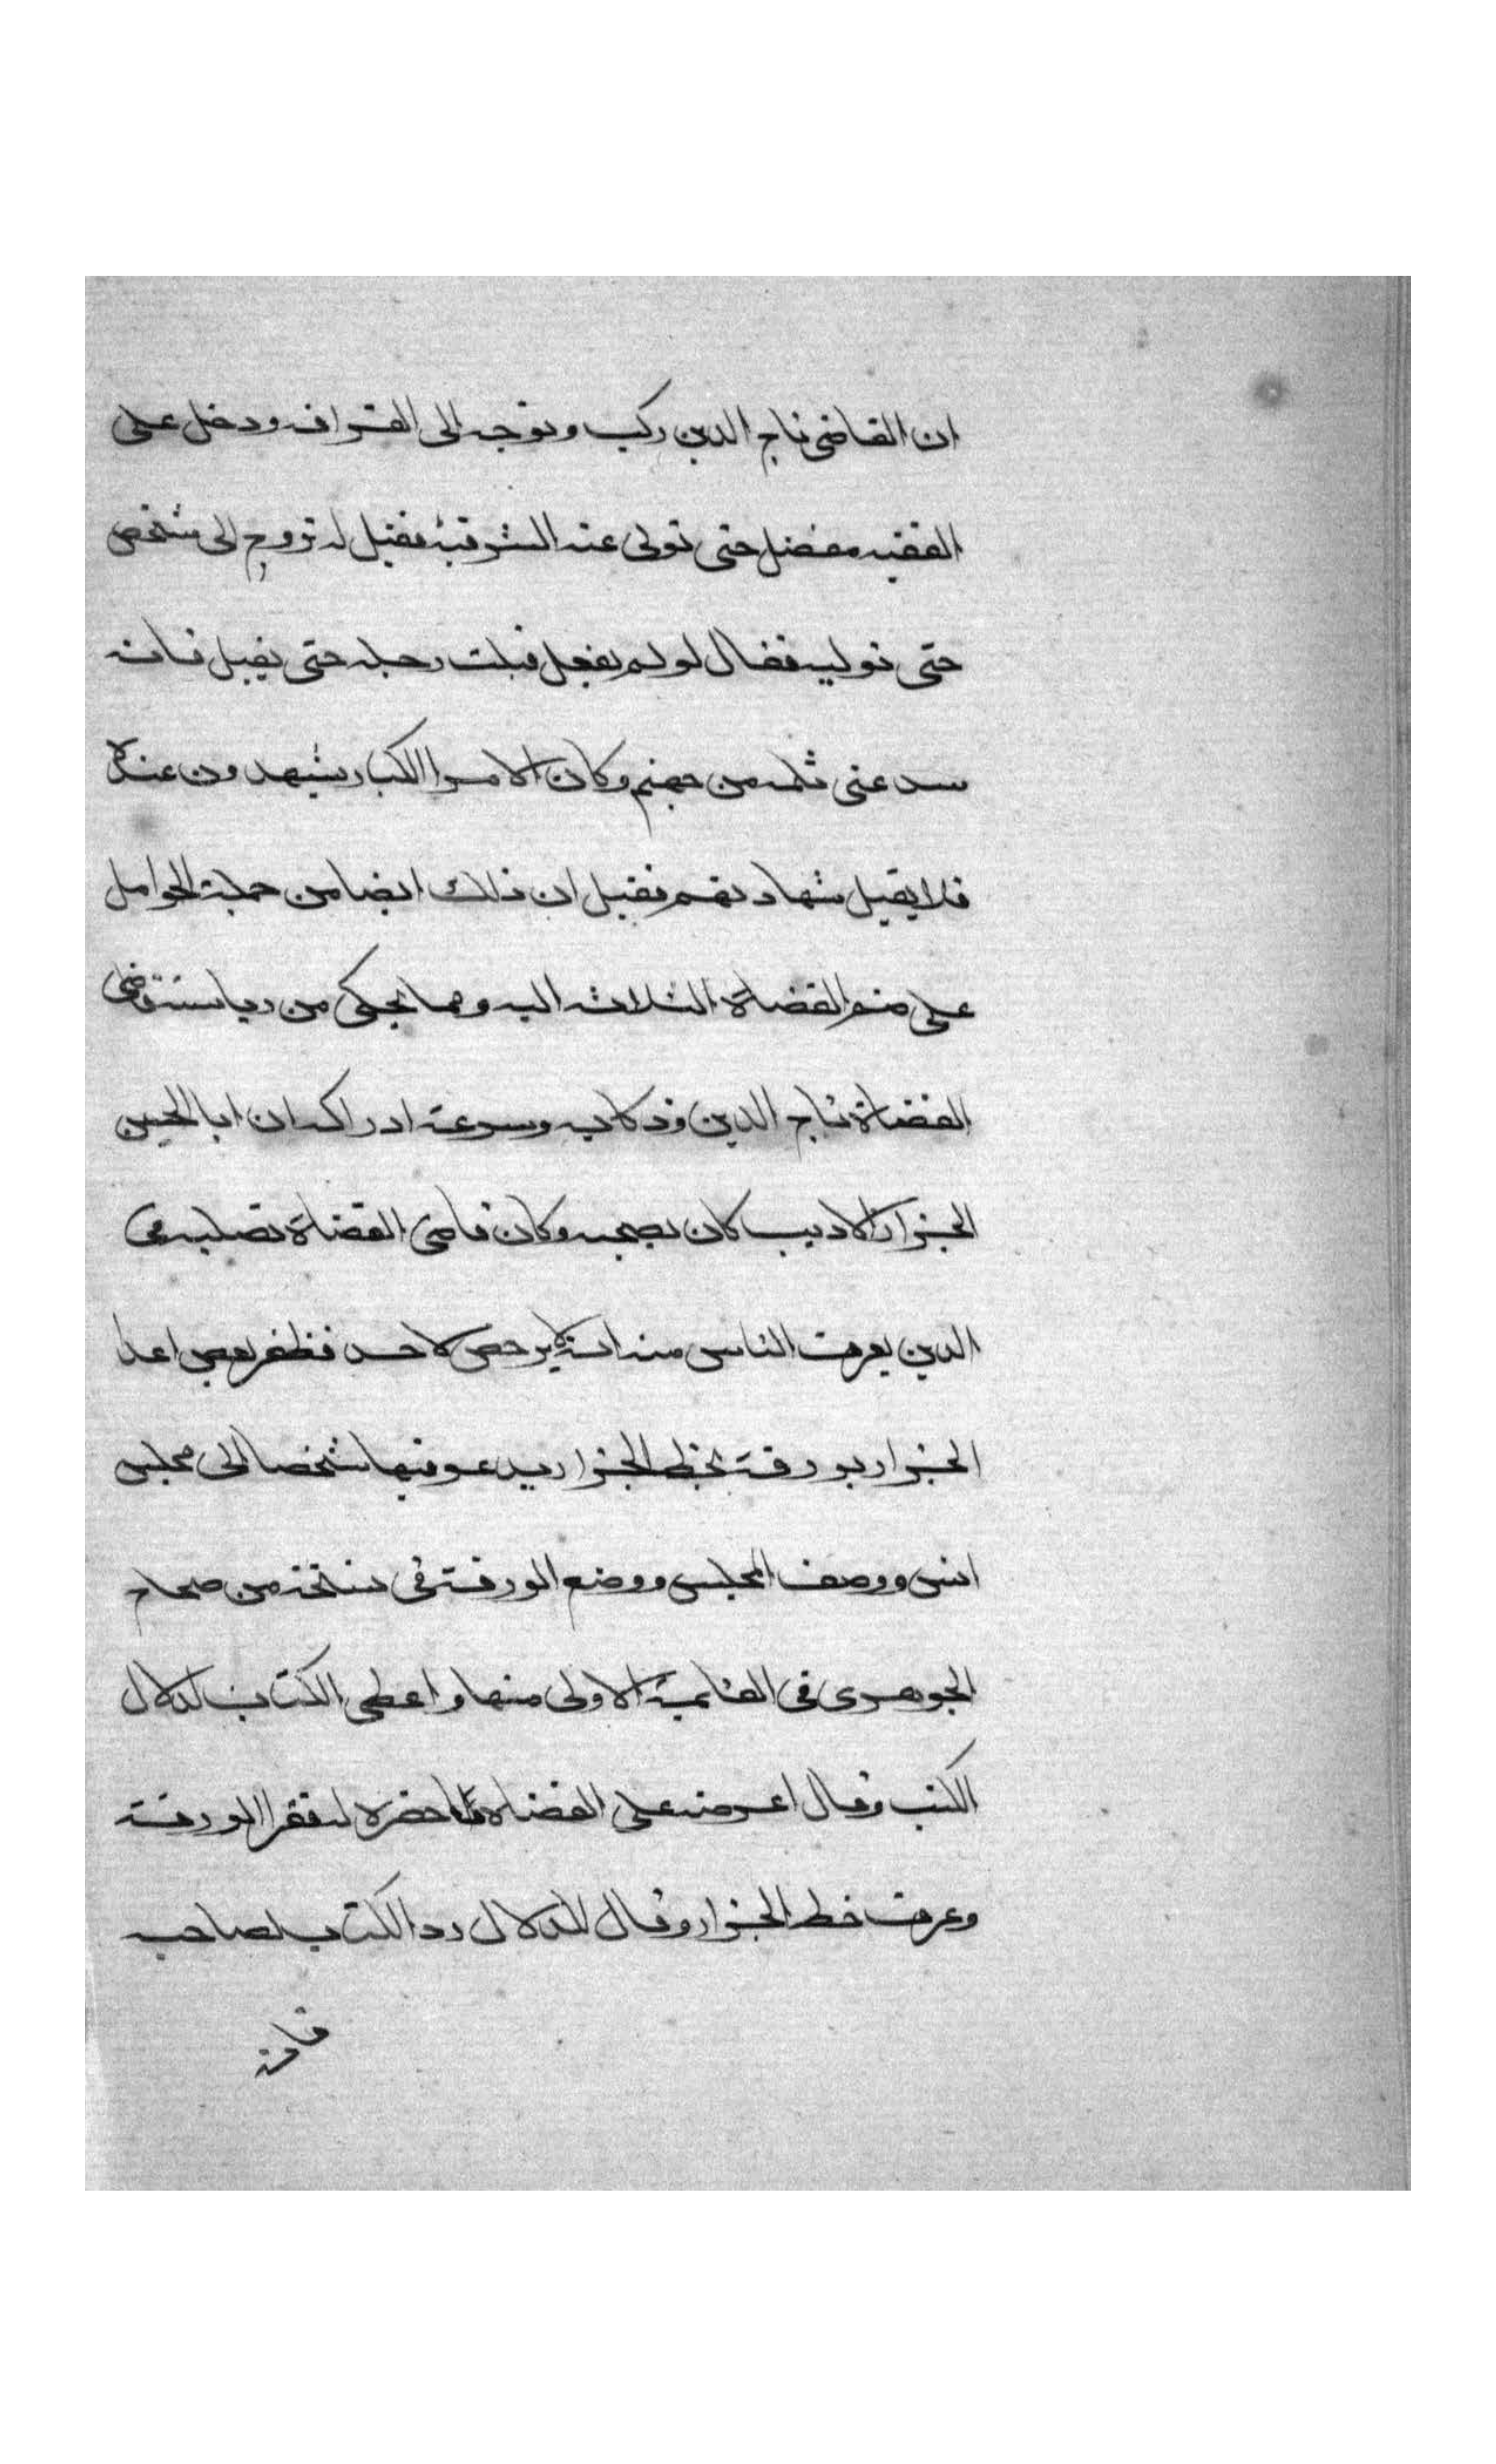 ان القاضى تاج الدين ركب وتوجه الى القرافه ودخل على
الفقيه مفضل حتى تولى عنه الشرقيه فقيل له تروح الى شخص
حتى توليه فقال لو لم يفعل قبلت رجله حتى يقبل فانه
سد عنى ثلمه من جهنم وكان الامرا الكبار يشهدون عنده
فلا يقبل شهادتهم فقيل ان ذلك ايضا من جملة الحوامل
على ضم القضاة الثلاثه اليه ومما يحكى من رياسة قاضى
القضاة تاج الدين وذكايه وسرعة ادراكه ان ابا الحسين
الجزار الاديب كان يصحبه وكان قاضى القضاة تصلبه فى
الدين يعرف الناس منه انه لا يرخص لاحد فظفر بعض اعدا
الجزار بورقة بخط الجزار يدعو فيها شخصا الى مجلس
انس ووصف المجلس ووضع الورقة فى نسخة من صحاح
الجوهرى فى القايمة الاولى منها واعطى الكتاب لدلال
الكتب وقال اعرضه على القضاة فاحضره له فقرا الورقة
وعرف خط الجزار وقال للدلال رد الكتاب لصاحبه
فانه